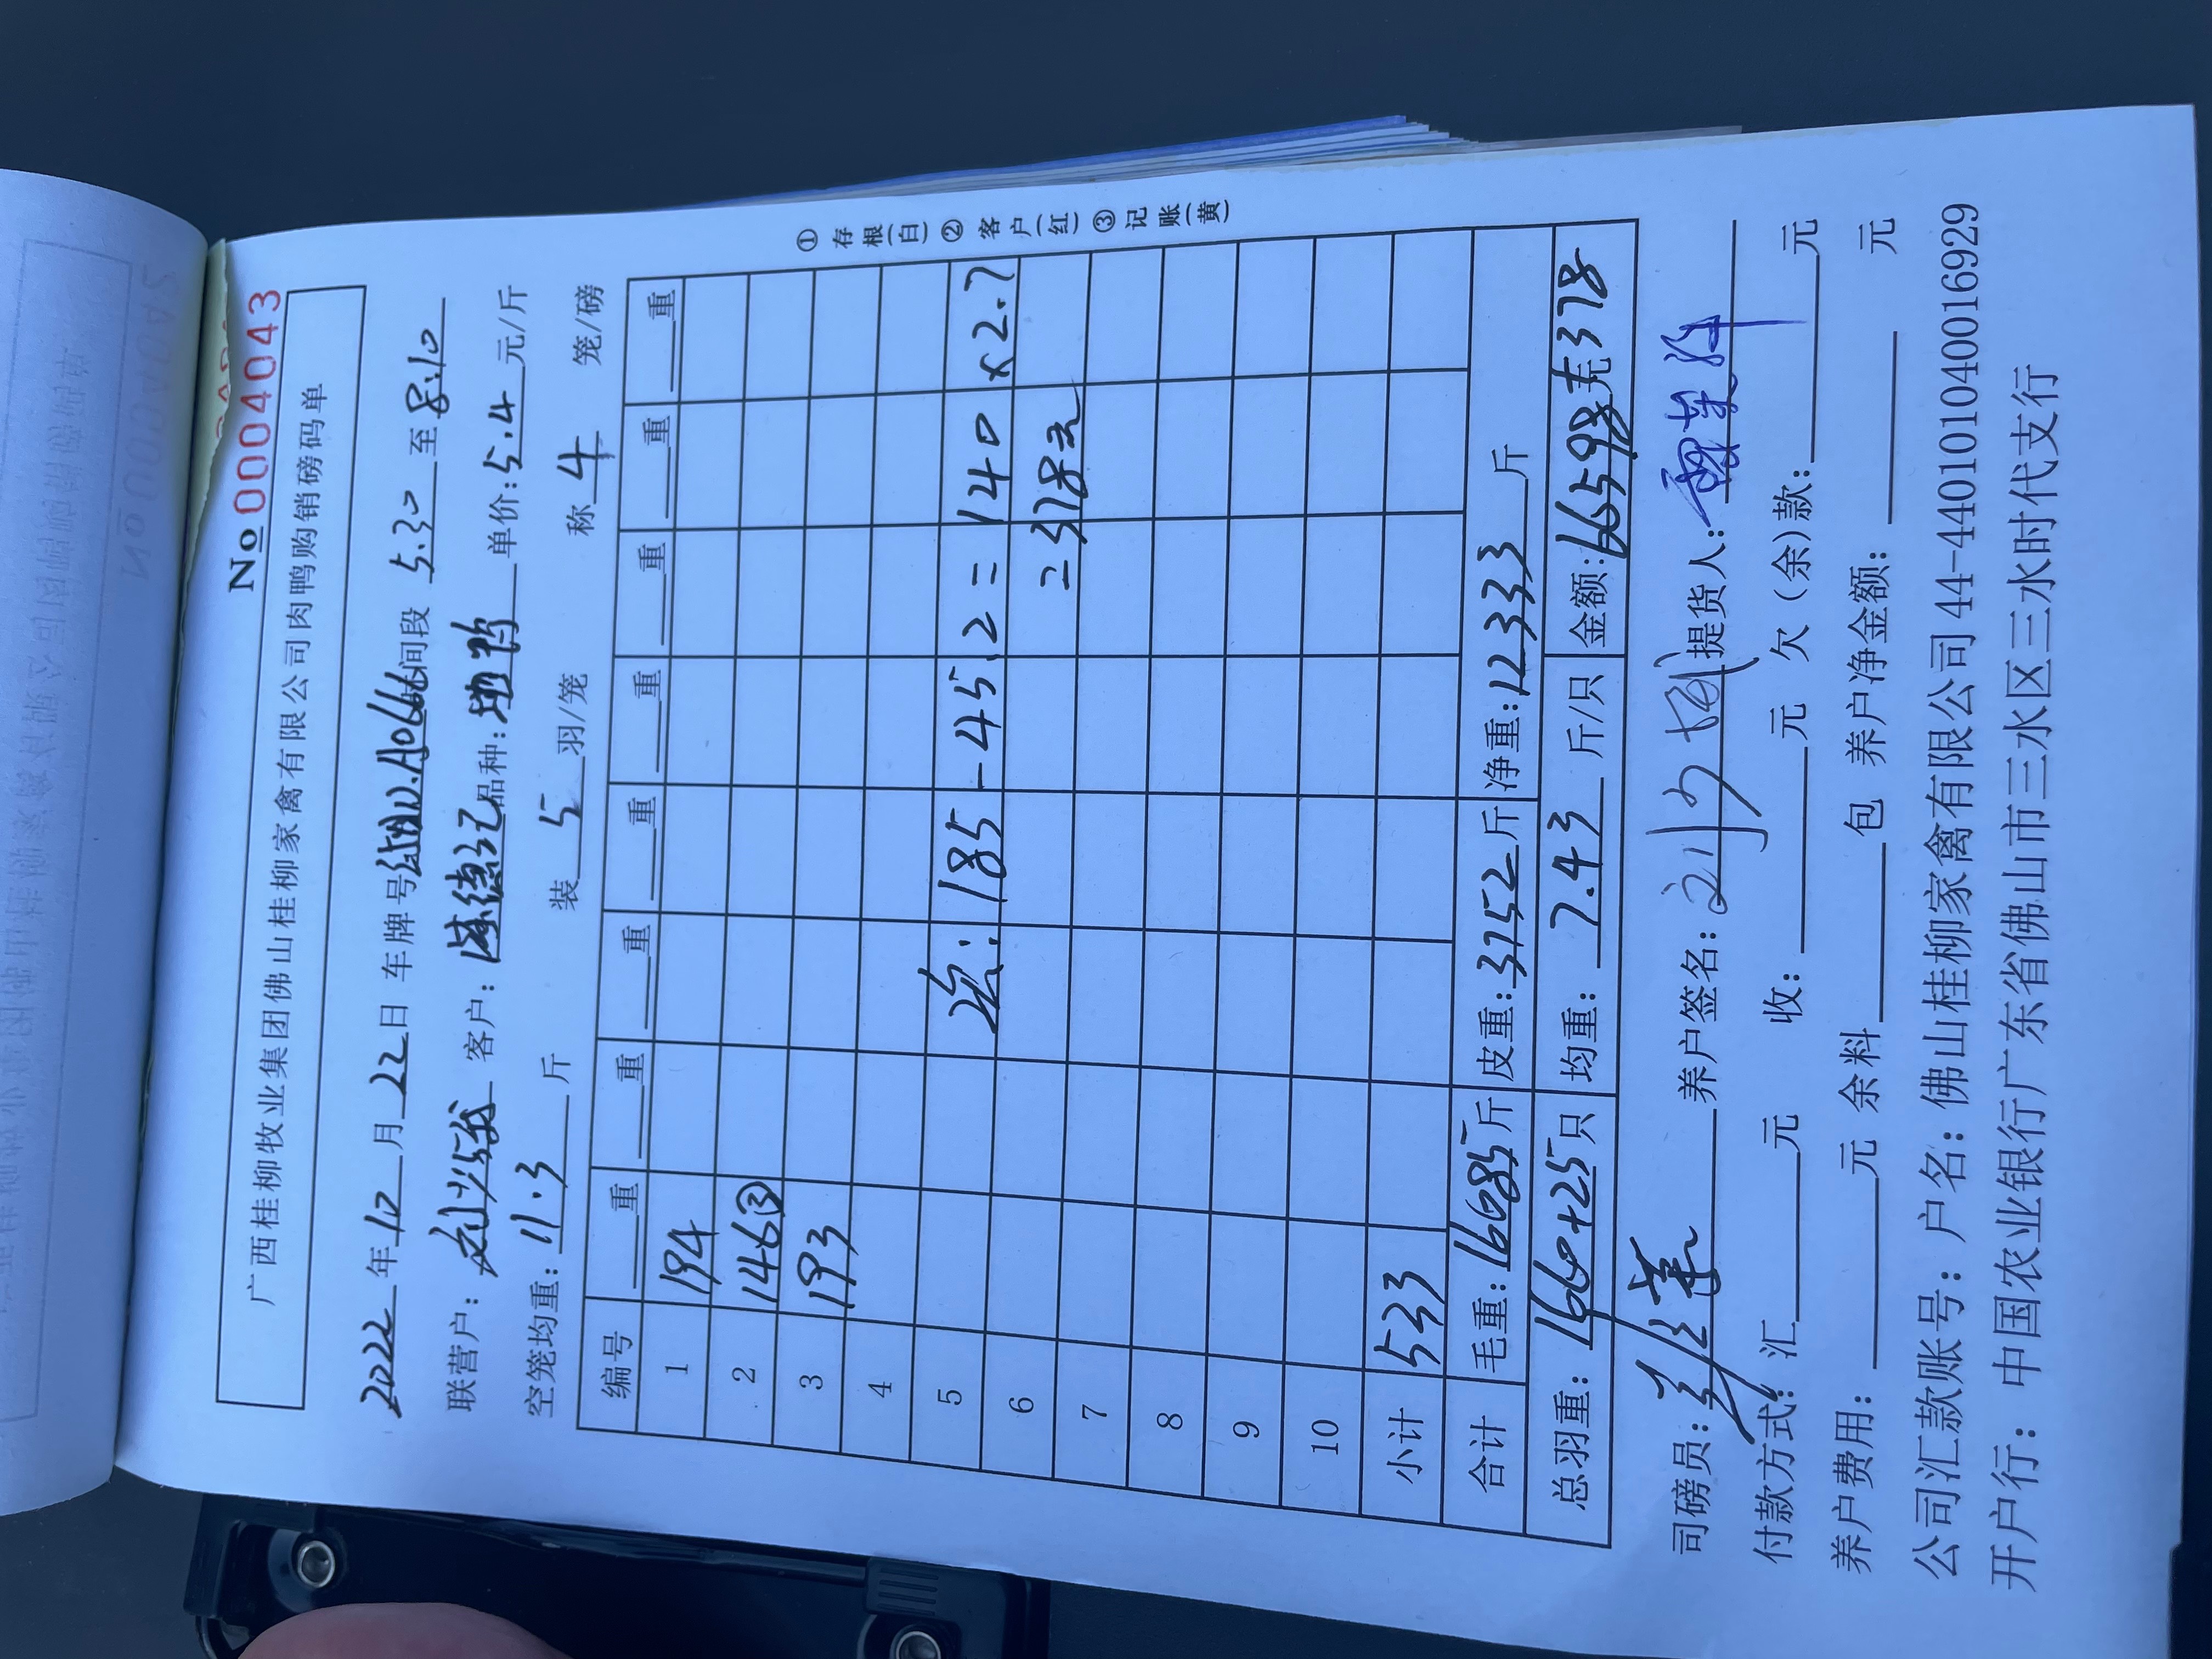 No 0004043
广西桂柳牧业集团佛山桂柳家禽有限公司肉鸭购销磅码单
2022年10月22日 车牌号 间段 5.30至8.10
联营户: 客户: 品种: 单价:5.4元/斤
空笼均重:11.3斤 装5羽/笼 称4笼/磅
编号 重 重 重 重 重 重 重 重
1 194
2 146③
3 193
4
5 185-45.2=140×2.7
6 =378元
7
8
9
10
小计 533
合计 毛重:16085斤 皮重:3752斤 净重:12333斤
总羽重:1660+25只 均重:7.43斤/只 金额:66598 378
①存根(白)②客户(红)③记账(黄)
司磅员: 养户签名: 提货人:
付款方式:汇 元 收: 元 欠(余)款: 元
养户费用: 元 余料 包 养户净金额: 元
公司汇款账号:户名:佛山桂柳家禽有限公司44-440101040016929
开户行:中国农业银行广东省佛山市三水区三水时代支行